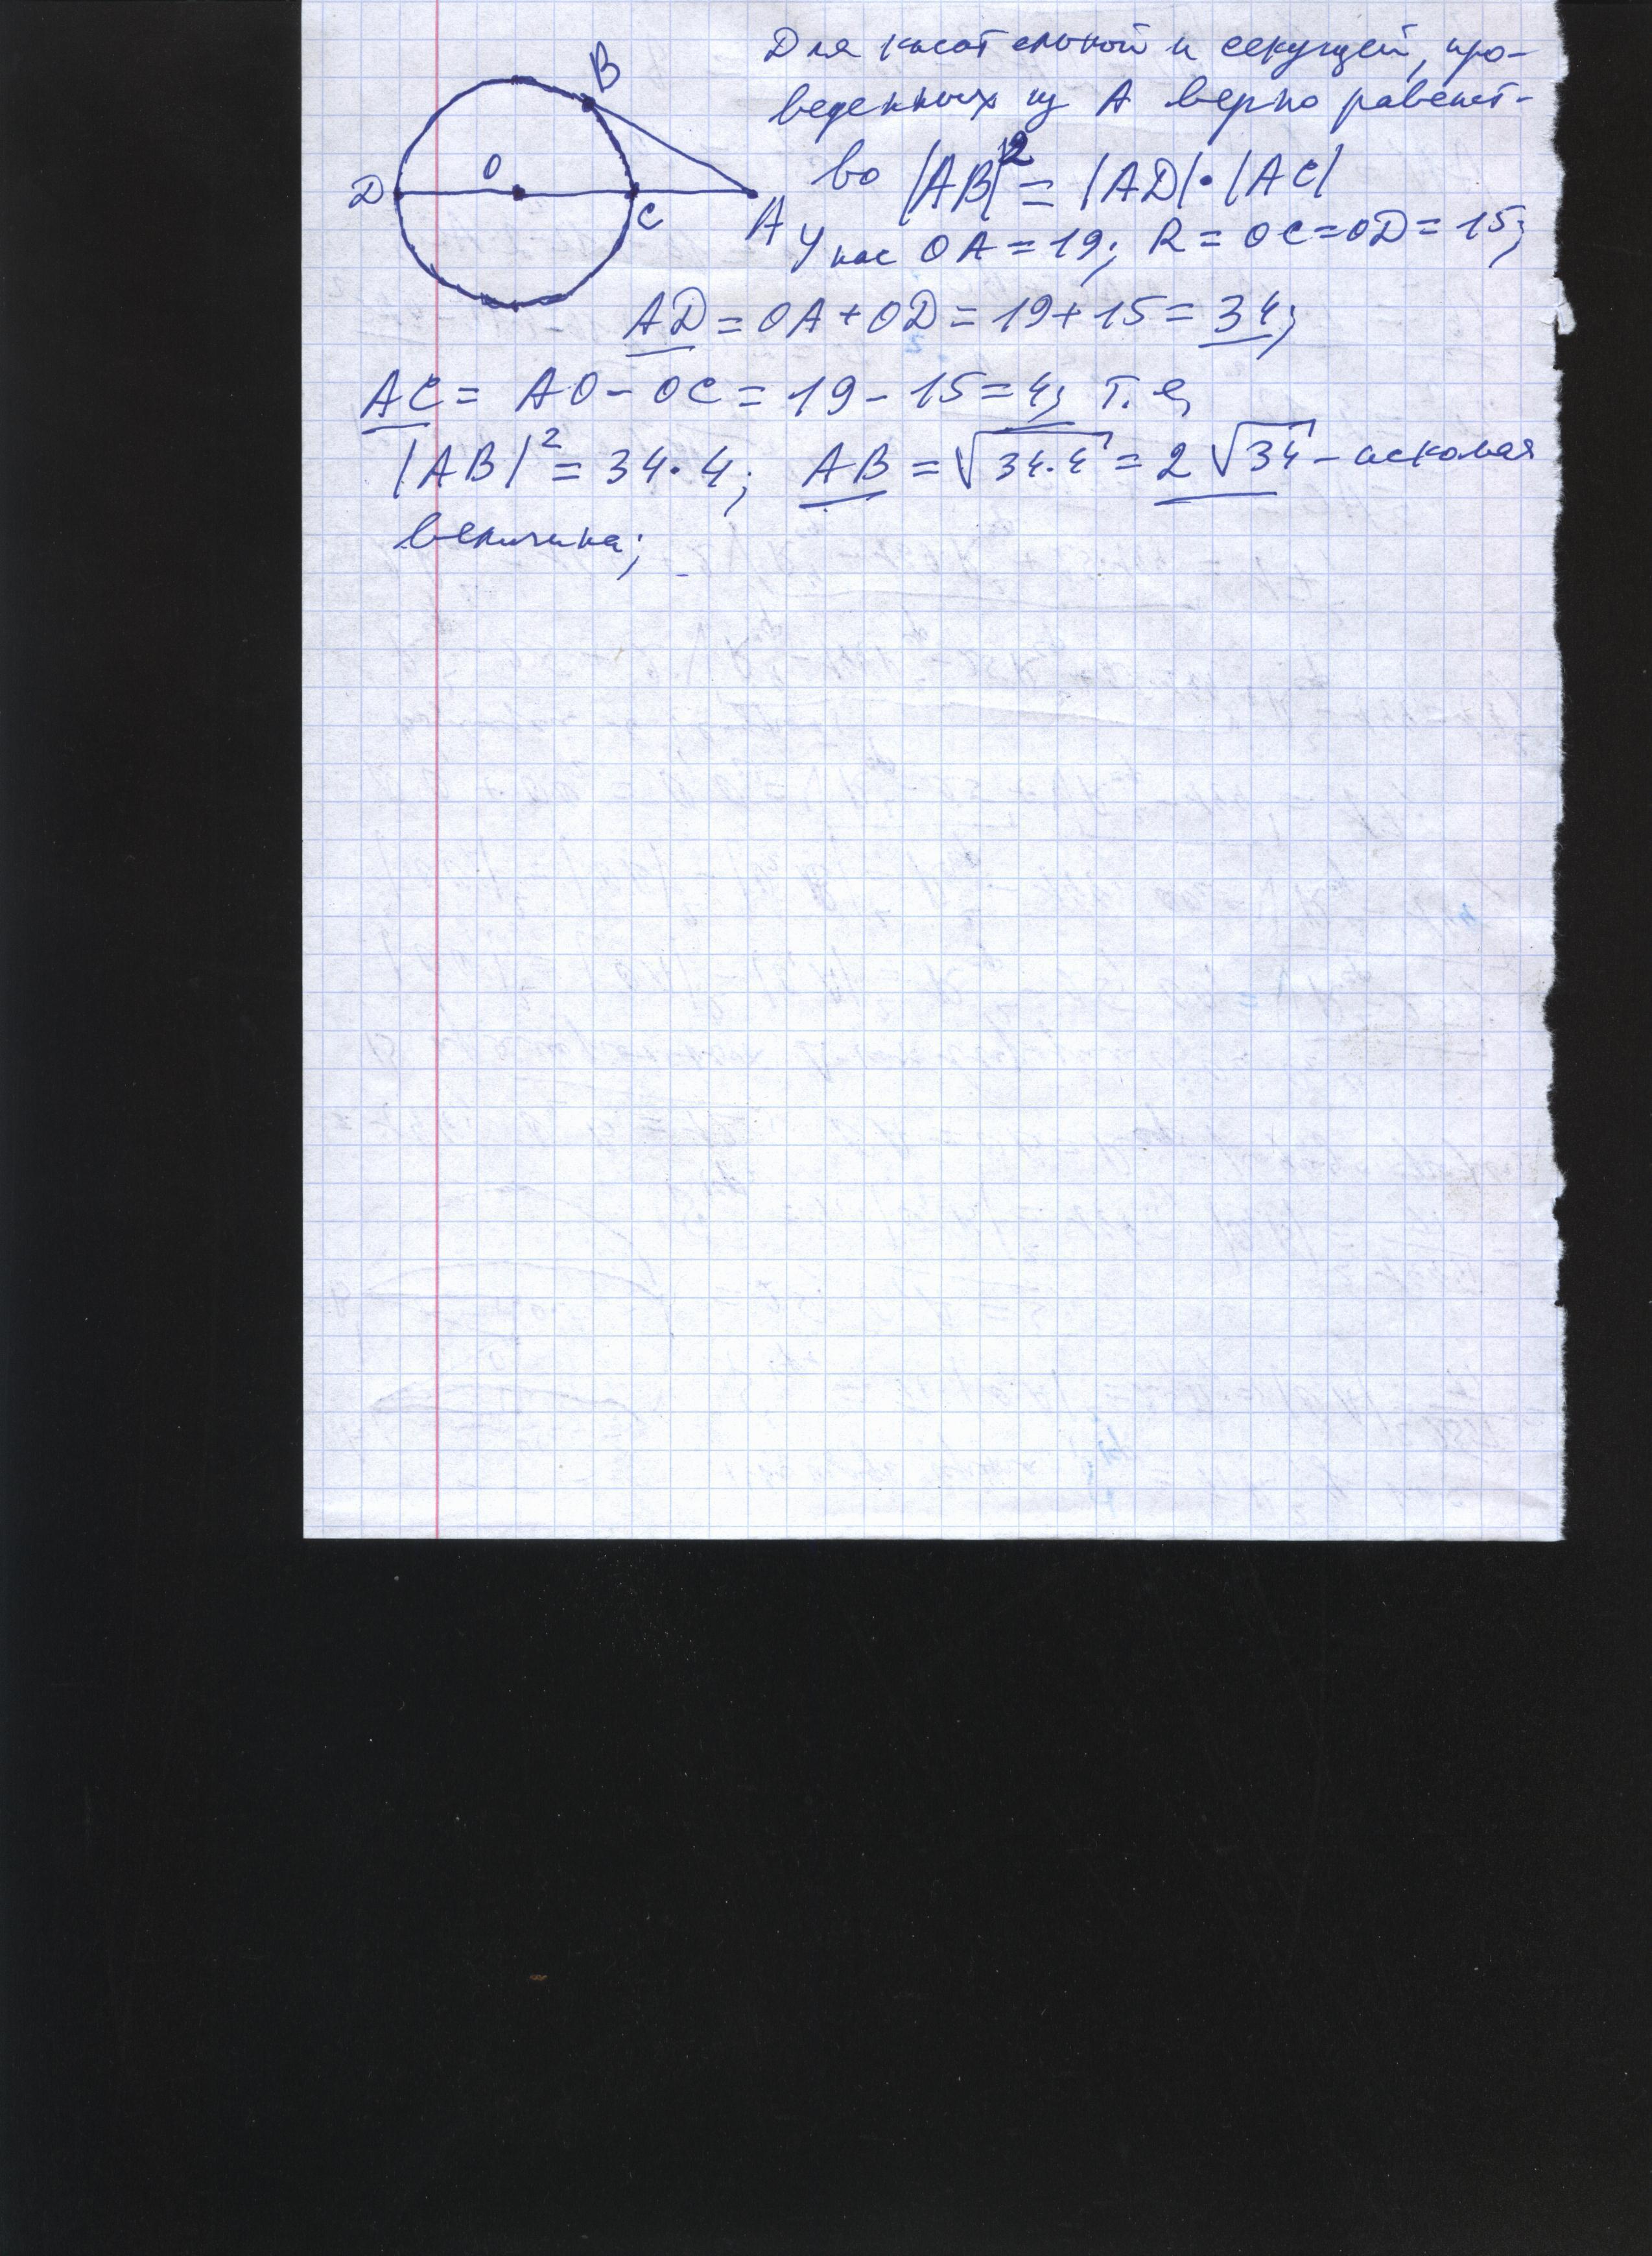 B
Для касательной и секущей, про-
веденных из A верно равенст-
D O C A
во |AB|² = |AD|·|AC|
У нас OA = 19; R = OC = OD = 15;
AD = OA + OD = 19 + 15 = 34;
AC = AO - OC = 19 - 15 = 4; т.е.
|AB|² = 34·4; AB = √34·4 = 2√34 - искомая
величина;